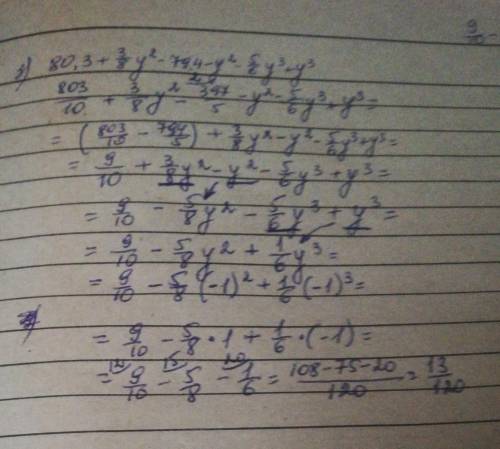 9/10 =
80,3 + 3/8 y² - 79,4 - y² - 5/6 y³ + y³
803/10 + 3/8 y² - 397/5 - y² - 5/6 y³ + y³ =
= (803/10 - 794/5) + 3/8 y² - y² - 5/6 y³ + y³ =
= 9/10 + 3/8 y² - y² - 5/6 y³ + y³ =
= 9/10 - 5/8 y² - 5/6 y³ + y³ =
= 9/10 - 5/8 y² + 1/6 y³ =
= 9/10 - 5/8 · (-1)² + 1/6 · (-1)³ =
= 9/10 - 5/8 · 1 + 1/6 · (-1) =
= 12) 9/10 - 15) 5/8 - 20) 1/6 = 108-75-20/120 = 13/120